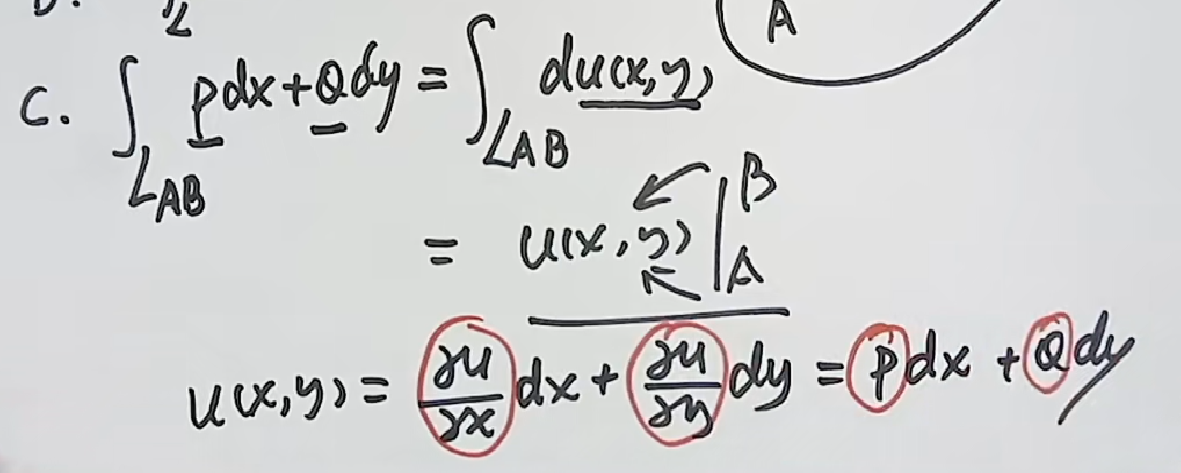 2
A
C. ∫_{L_{AB}} Pdx+Qdy = ∫_{L_{AB}} du(x,y)
= u(x,y) |_A^B
u(x,y) = ∂u/∂x dx + ∂u/∂y dy = Pdx + Qdy